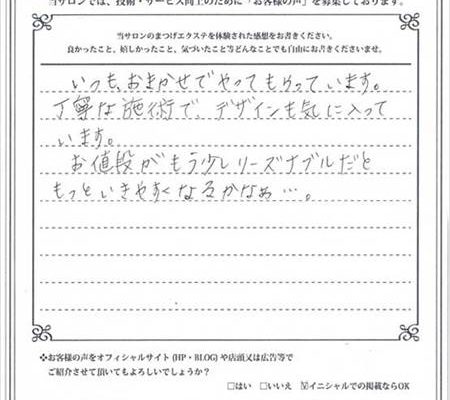 当サロンでは、技術・サービス向上のために「お客様の声」を募集しております。
当サロンのまつげエクステを体験された感想をお書きください。
良かったこと、嬉しかったこと、気づいたこと等どんなことでも自由にお書きくださいませ。
いつも、おまかせでやってもらっています。
丁寧な施術で、デザインも気に入って
います。
お値段がもう少しリーズナブルだと
もっといきやすくなるかなぁ…。
❖お客様の声をオフィシャルサイト(HP・BLOG)や店頭又は広告等で
ご紹介させて頂いてもよろしいでしょうか?
□はい □いいえ ☑イニシャルでの掲載ならOK